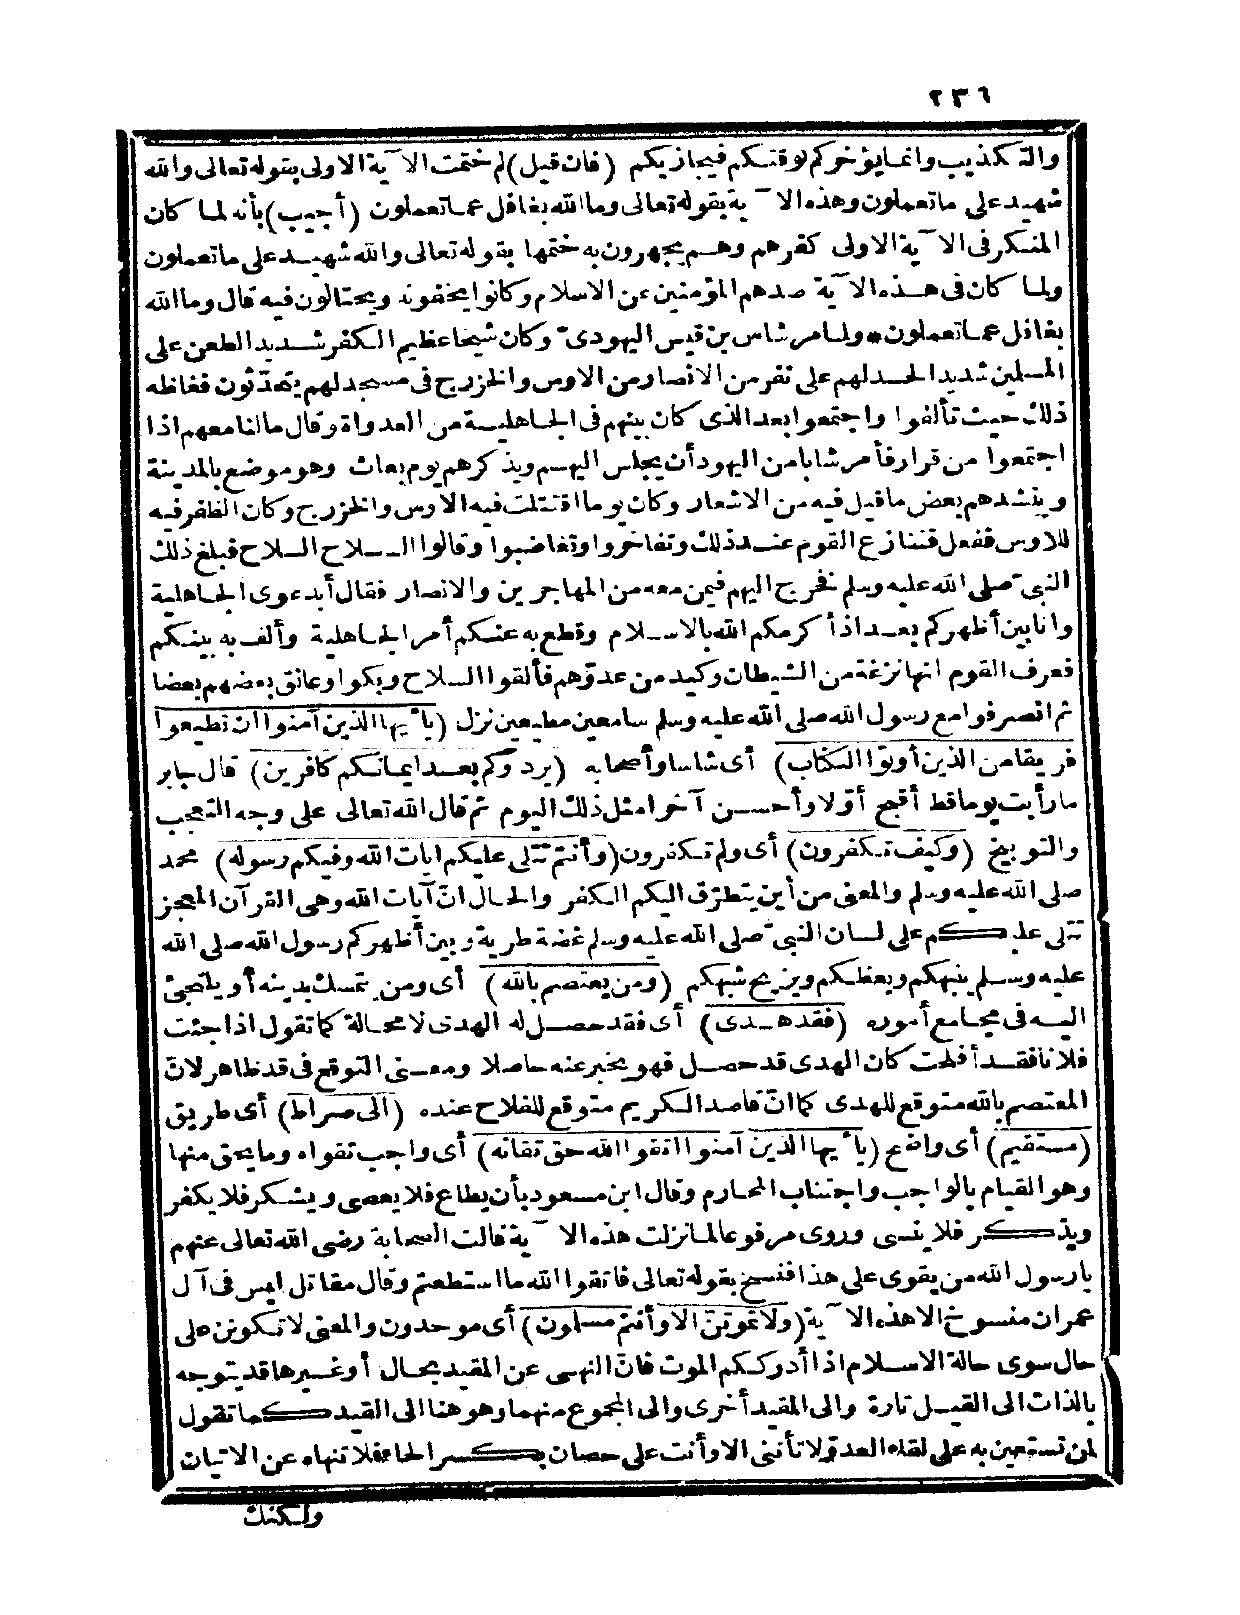 ٢٣٦
والتكذيب وانما يؤخركم لوقتكم فيجازيكم (فان قيل) لم ختمت الآية الاولى بقوله تعالى والله
شهيد على ما تعملون وهذه الآية بقوله تعالى وما الله بغافل عما تعملون (أجيب) بأنه لما كان
المنكر فى الآية الاولى كفرهم وهم يجهرون به ختمها بقوله تعالى والله شهيد على ما تعملون
ولما كان فى هذه الآية صدهم المؤمنين عن الاسلام وكانوا يخفونه ويحتالون فيه قال وما الله
بغافل عما تعملون * ولما مر شاس بن قيس اليهودىّ وكان شيخا عظيم الكفر شديد الطعن على
المسلمين شديد الحسد لهم على نفر من الانصار من الاوس والخزرج فى مسجد لهم يتحدّثون فغاظه
ذلك حيث تألفوا واجتمعوا بعد الذى كان بينهم فى الجاهلية من العداوة وقال مالنا معهم اذا
اجتمعوا من قرار فأمر شابا من اليهود أن يجلس اليهم ويذكرهم يوم بعاث وهو موضع بالمدينة
وينشدهم بعض ما قيل فيه من الاشعار وكان يوما اقتتلت فيه الاوس والخزرج وكان الظفر فيه
للاوس ففعل فتنازع القوم عند ذلك وتفاخروا وتغاضبوا وقالوا السلاح السلاح فبلغ ذلك
النبىّ صلى الله عليه وسلم فخرج اليهم فيمن معه من المهاجرين والانصار فقال أبدعوى الجاهلية
وانا بين أظهركم بعد اذ أكرمكم الله بالاسلام وقطع به عنكم أمر الجاهلية وألف به بينكم
فعرف القوم انها نزغة من الشيطان وكيد من عدوّهم فألقوا السلاح وبكوا وعانق بعضهم بعضا
ثم انصرفوا مع رسول الله صلى الله عليه وسلم سامعين مطيعين نزل (يأيها الذين آمنوا ان تطيعوا
فريقا من الذين أوتوا الكتاب) أى شاسا وأصحابه (يردّوكم بعد ايمانكم كافرين) قال جابر
ما رأيت يوما قط أقبح أوّلا وأحسن آخرا مثل ذلك اليوم ثم قال الله تعالى على وجه التعجب
والتوبيخ (وكيف تكفرون) أى ولم تكفرون (وأنتم تتلى عليكم ايات الله وفيكم رسوله) محمد
صلى الله عليه وسلم والمعنى من أين يتطرّق اليكم الكفر والحال انّ آيات الله وهى القرآن المعجز
تتلى عليكم على لسان النبىّ صلى الله عليه وسلم غضة طرية وبين أظهركم رسول الله صلى الله
عليه وسلم ينبهكم ويعظكم ويزيح شبهكم (ومن يعتصم بالله) أى ومن يتمسك بدينه أو يلتجئ
اليه فى مجامع أموره (فقد هدى) أى فقد حصل له الهدى لا محالة كما تقول اذا جئت
فلانا فقد أفلحت كان الهدى قد حصل فهو يخبر عنه حاصلا ومعنى التوقع فى قد ظاهر لانّ
المعتصم بالله متوقع للهدى كما انّ قاصد الكريم متوقع للفلاح عنده (الى صراط) أى طريق
(مستقيم) أى واضح (يأيها الذين آمنوا اتقوا الله حق تقاته) أى واجب تقواه وما يحق منها
وهو القيام بالواجب واجتناب المحارم وقال ابن مسعود بأن يطاع فلا يعصى ويشكر فلا يكفر
ويذكر فلا ينسى وروى مرفوعا لما نزلت هذه الآية قالت الصحابة رضى الله تعالى عنهم
يا رسول الله من يقوى على هذا فنسخ بقوله تعالى فاتقوا الله ما استطعتم وقال مقاتل ليس فى آل
عمران منسوخ الا هذه الآية (ولا تموتنّ الا وأنتم مسلمون) أى موحدون والمعنى لا تكونن على
حال سوى حالة الاسلام اذا أدرككم الموت فانّ النهى عن المقيد بحال أو غيرها قد يتوجه
بالذات الى القيد تارة والى المقيد أخرى والى المجموع منهما وهو هنا الى القيد كما تقول
لمن تستعين به على لقاء العدوّ لا تأتنى الا وأنت على حصان بكسر الحاء فلا تنهاه عن الاتيان
ولكنك